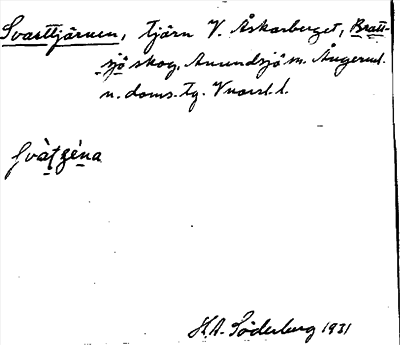 Svarttjärnen, tjärn V. Åskarberget, Bratt-
sjö skog, Anundsjö sn. Ångerml.
n. doms. tg. Vnorrl. l.
svàtzèna
H.A. Söderberg 1931